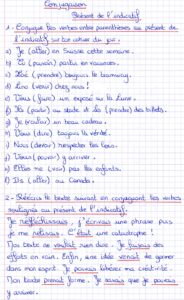 Conjugaison
Présent de l'indicatif
1 - Conjugue les verbes entre parenthèses au présent de
l'indicatif sur ton cahier du jour.
a) Je (aller) en Suisse cette semaine.
b) Tu (pouvoir) partir en vacances.
c) Zoé (prendre) toujours le tramway.
d) Lina (venir) chez nous !
e) Vous (faire) un exposé sur la Lune.
f) Ils (aller) au stade et ils (prendre) des billets.
g) Je (vouloir) un beau cadeau.
h) Vous (dire) toujours la vérité.
i) Nous (devoir) respecter les lois.
j) Vous (pouvoir) y arriver.
k) Elles me (voir) par les enfants.
l) Ils (aller) au Canada.
2 - Réécris le texte suivant en conjuguant les verbes
soulignés au présent de l'indicatif.
Je réfléchissais, j'écrivais une phrase puis
je me relisais. C'était une catastrophe !
Mon texte ne voulait rien dire. Je faisais des
efforts en vain. Enfin, une idée venait de germer
dans mon esprit. Je pouvais libérer ma créativité.
Mon texte prenait forme. Je savais que je pouvais
y arriver.